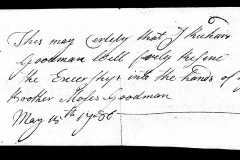 This may Certefy that I Richard
Goodman Will freely Resine
the Enceerships into the hands of my
Brother Moses Goodman
May 15th 1786